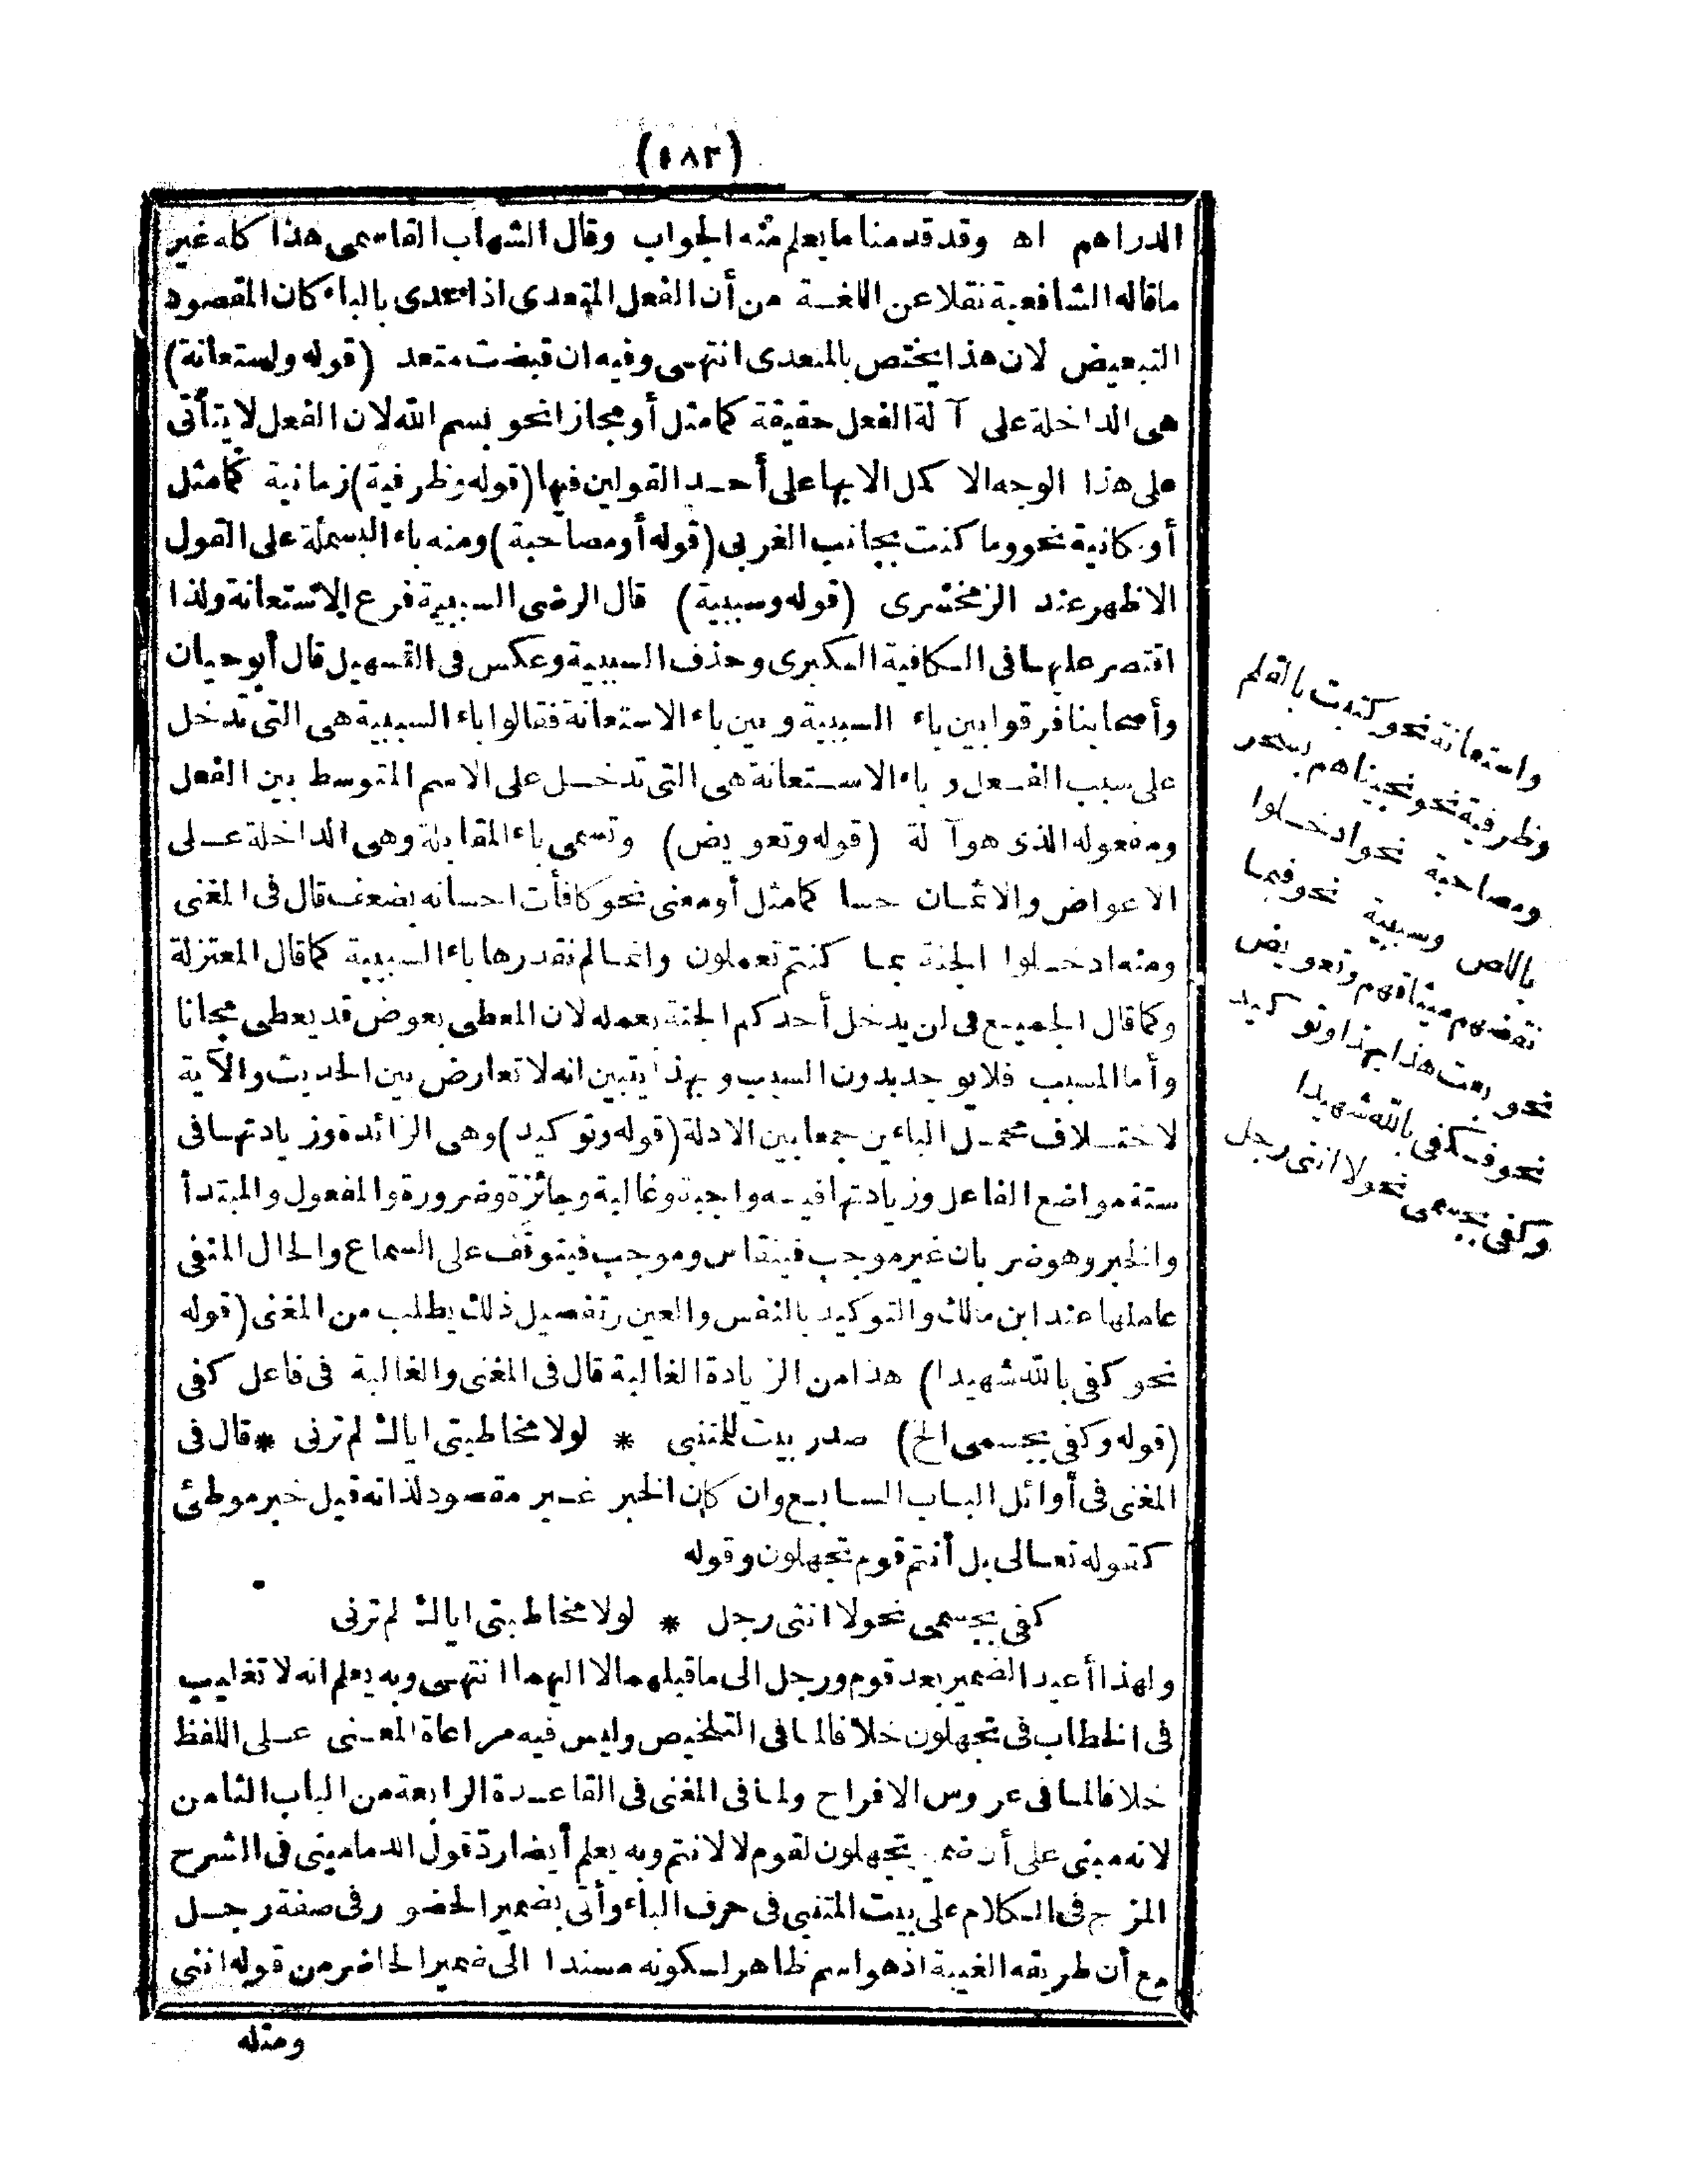 (١٨٣)
الدراهم اه وقد قدمنا ما يعلم منه الجواب وقال الشهاب القاسمى هذا كله غير
ما قاله الشافعية نقلا عن اللغة من أن الفعل المتعدى اذا تعدى بالباء كان المقصود
التبعيض لان هذا يختص بالمتعدى انتهى وفيه ان قبضت متعد (قوله ولستعانة)
هى الداخلة على آلة الفعل حقيقة كما مثل أو مجازا نحو بسم الله لان الفعل لا يتأتى
على هذا الوجه الاكمل الابها على أحد القولين فيها (قوله وظرفية) زمانية كما مثل
أو مكانية نحو وما كنت بجانب الغربى (قوله أو مصاحبة) ومنه باء البسملة على القول
الاظهر عند الزمخشرى (قوله وسببية) قال الرضى السببية فرع الاستعانة ولذا
اقتصر عليها فى الكافية الكبرى وحذف السببية وعكس فى التسهيل قال أبو حيان
وأصحابنا فرقوا بين باء السببية وبين باء الاستعانة فقالوا باء السببية هى التى تدخل
على سبب الفعل وباء الاستعانة هى التى تدخل على الاسم المتوسط بين الفعل
ومفعوله الذى هو آلة (قوله وتعويض) وتسمى باء المقابلة وهى الداخلة على
الاعواض والاثمان حسا كما مثل أو معنى نحو كافأت احسانه بضعف قال فى المغنى
ومنه ادخلوا الجنة بما كنتم تعملون وانما لم نقدرها باء السببية كما قال المعتزلة
وكما قال الجميع فى لن يدخل أحدكم الجنة بعمله لان المعطى بعوض قد يعطى مجانا
وأما المسبب فلا يوجد بدون السبب وبهذا يتبين انه لا تعارض بين الحديث والآية
لاختلاف محمل الباءين جمعا بين الادلة (قوله وتوكيد) وهى الزائدة وزيادتها فى
ستة مواضع الفاعل وزيادتها فيه واجبة وغالبة وجائزة وضرورة والمفعول والمبتدأ
والخبر وهو ضربان غير موجب فينقاس وموجب فيتوقف على السماع والحال المنفى
عاملها عند ابن مالك والتوكيد بالنفس والعين وتفصيل ذلك يطلب من المغنى (قوله
نحو كفى بالله شهيدا) هذا من الزيادة الغالبة قال فى المغنى والغالبة فى فاعل كفى
(قوله وكفى بجسمى الخ) صدر بيت للمتنبى * لولا مخاطبتى اياك لم ترنى * قال فى
المغنى فى أوائل الباب السابع وان كان الخبر غير مقصود لذاته قيل خبر موطئ
كقوله تعالى بل أنتم قوم تجهلون وقوله
كفى بجسمى نحولا اننى رجل * لولا مخاطبتى اياك لم ترنى
ولهذا أعيد الضمير بعد قوم ورجل الى ما قبلهما لا اليهما انتهى وبه يعلم انه لا تغليب
فى الخطاب فى تجهلون خلافا لما فى التلخيص وليس فيه مراعاة المعنى على اللفظ
خلافا لما فى عروس الافراح ولما فى المغنى فى القاعدة الرابعة من الباب الثامن
لانه مبنى على أن ضمير تجهلون لقوم لا لانتم وبه يعلم أيضا رد قول الدمامينى فى الشرح
المزج فى الكلام على بيت المتنبى فى حرف الباء وأتى بضمير الحضور فى صفة رجل
مع أن طريقه الغيبة اذ هو اسم ظاهر لكونه مسندا الى ضمير الحاضر من قوله اننى
ومثله
واستعانة نحو كتبت بالقلم
وظرفية نحو نجيناهم بسحر
ومصاحبة نحو ادخلوا
بالامن وسببية نحو فبما
نقضهم ميثاقهم وتعويض
نحو بعت هذا بهذا وتوكيد
نحو فكفى بالله شهيدا
وكفى بجسمى نحولا اننى رجل